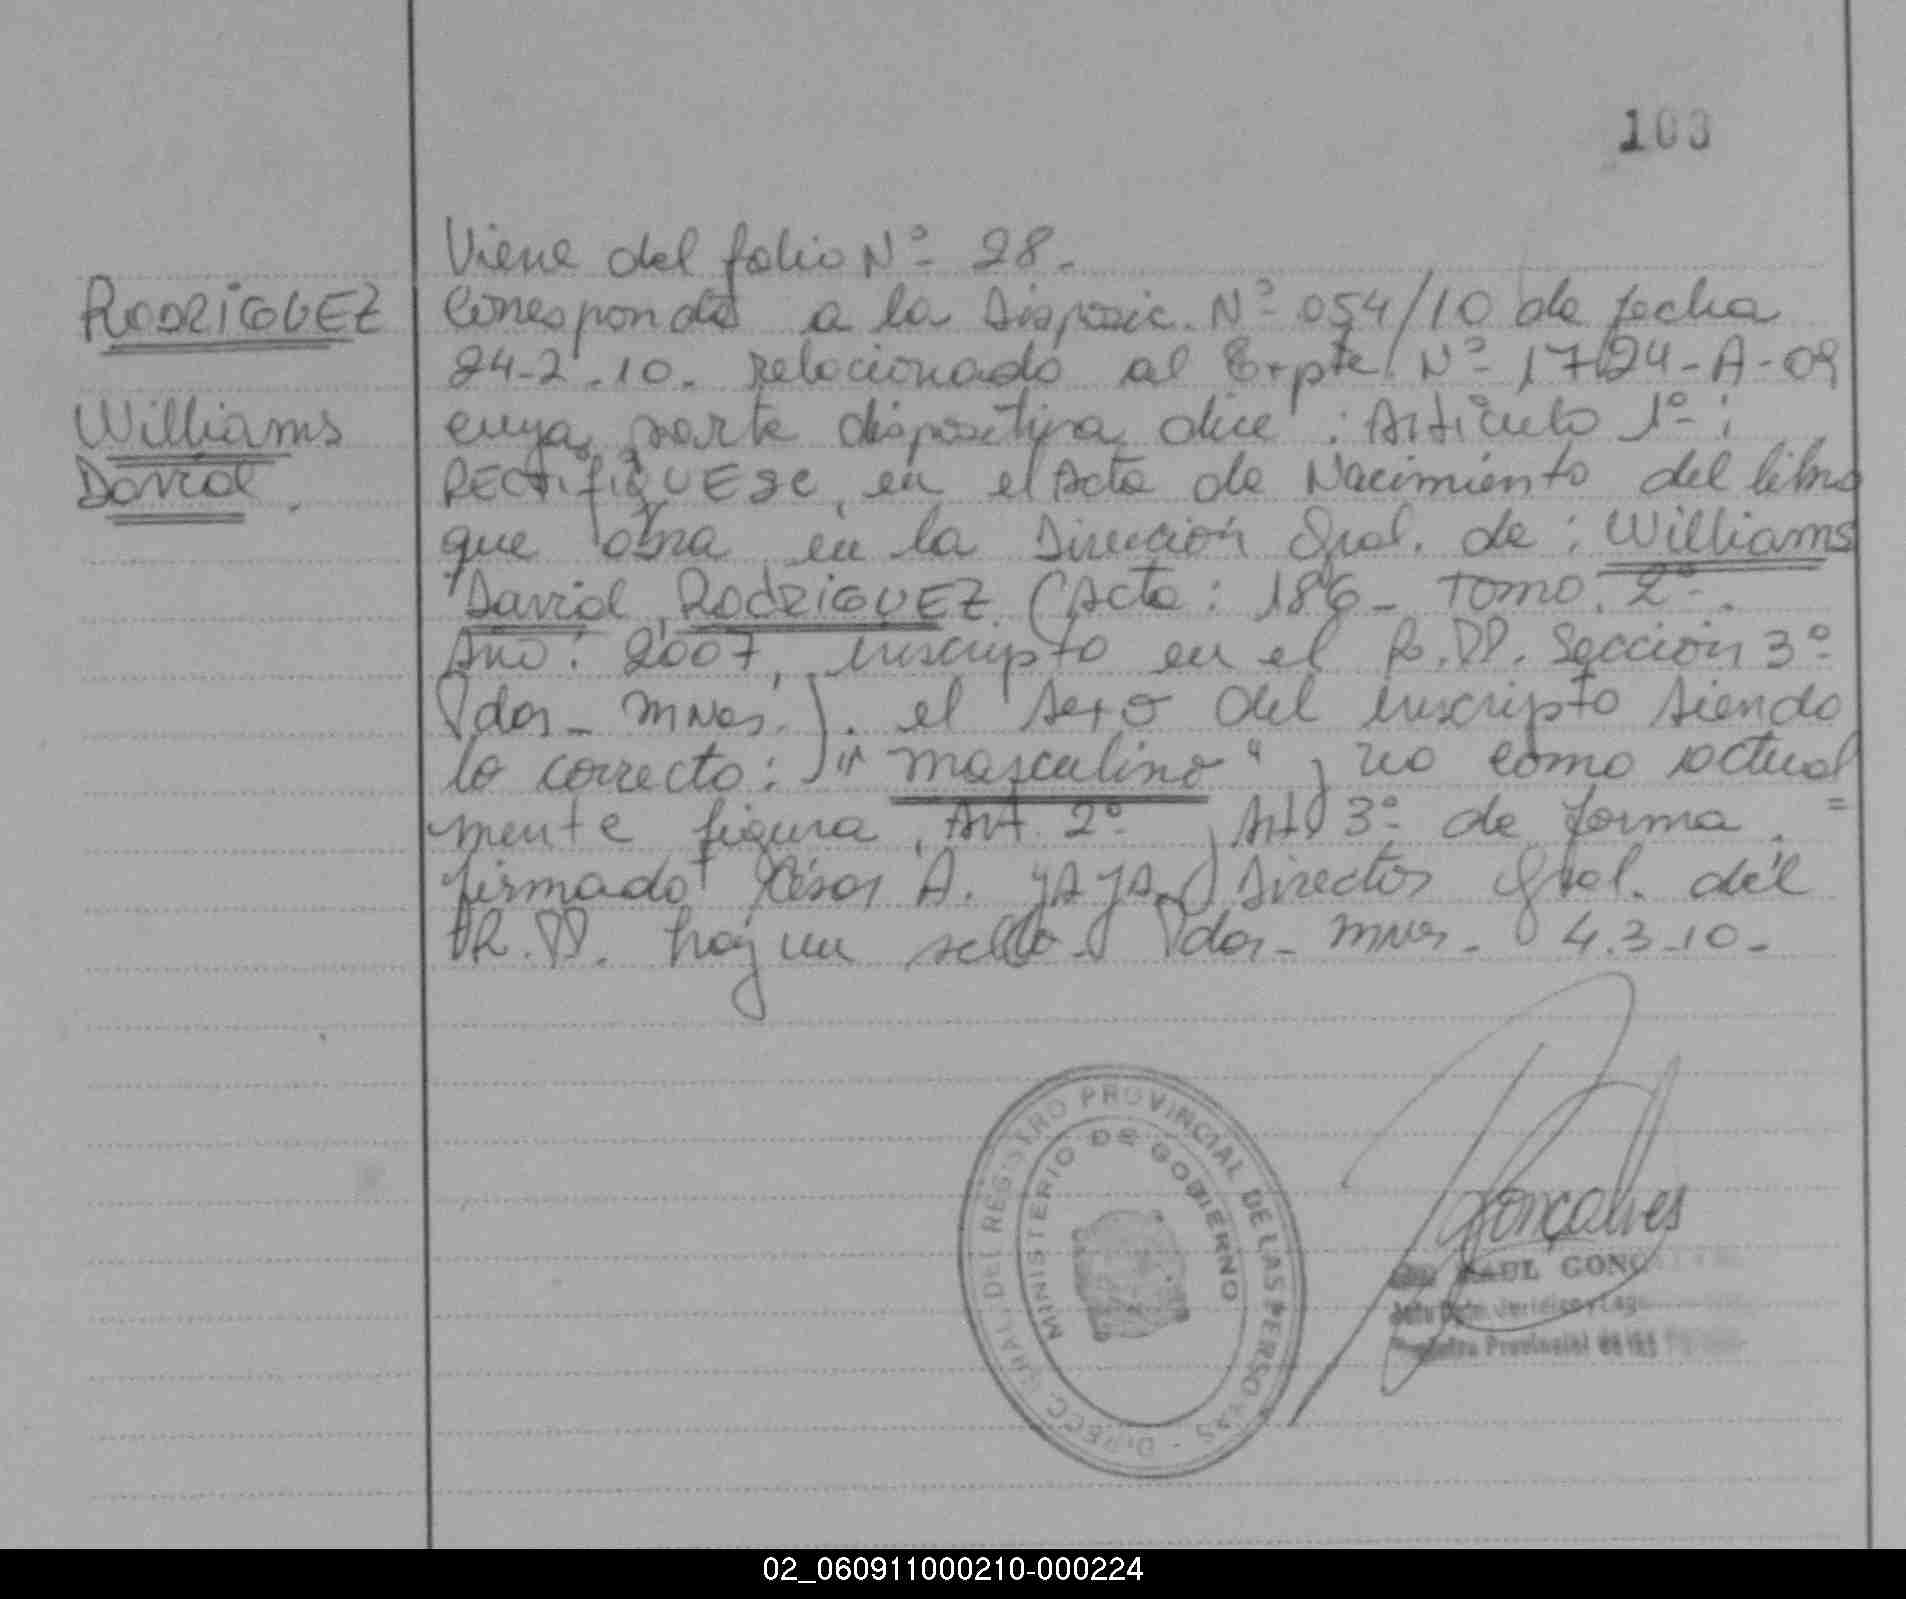 103
Viene del folio Nº 28.
RODRIGUEZ
Corresponde a la Disposic. Nº 054/10 de fecha
24-2.10. relacionado al Expte Nº 1724-A-09
Williams
cuya parte dispositiva dice: Artículo 1º:
David.
RECTIFIQUESE, en el Acta de Nacimiento del libro
que obra en la Dirección Gral. de: Williams
David RODRIGUEZ (Acta: 186- Tomo: 2º.
Año: 2007, inscripto en el R.PP. Sección 3º
Pdas- mnes.). el sexo del inscripto siendo
lo correcto: "masculino" y no como actual
mente figura. Art. 2º y Art 3º de forma. =
firmado César A. YAYA. Director Gral. del
R.PP. hay un sello- Pdas- mnes. 4.3.10-
DIRECC. GRAL. DEL REGISTRO PROVINCIAL DE LAS PERSONAS -
MINISTERIO DE GOBIERNO
Gonçalves
RAUL GONÇ
Jefe Dpto. Jurídico y Lega
Registro Provincial de las
02_060911000210-000224